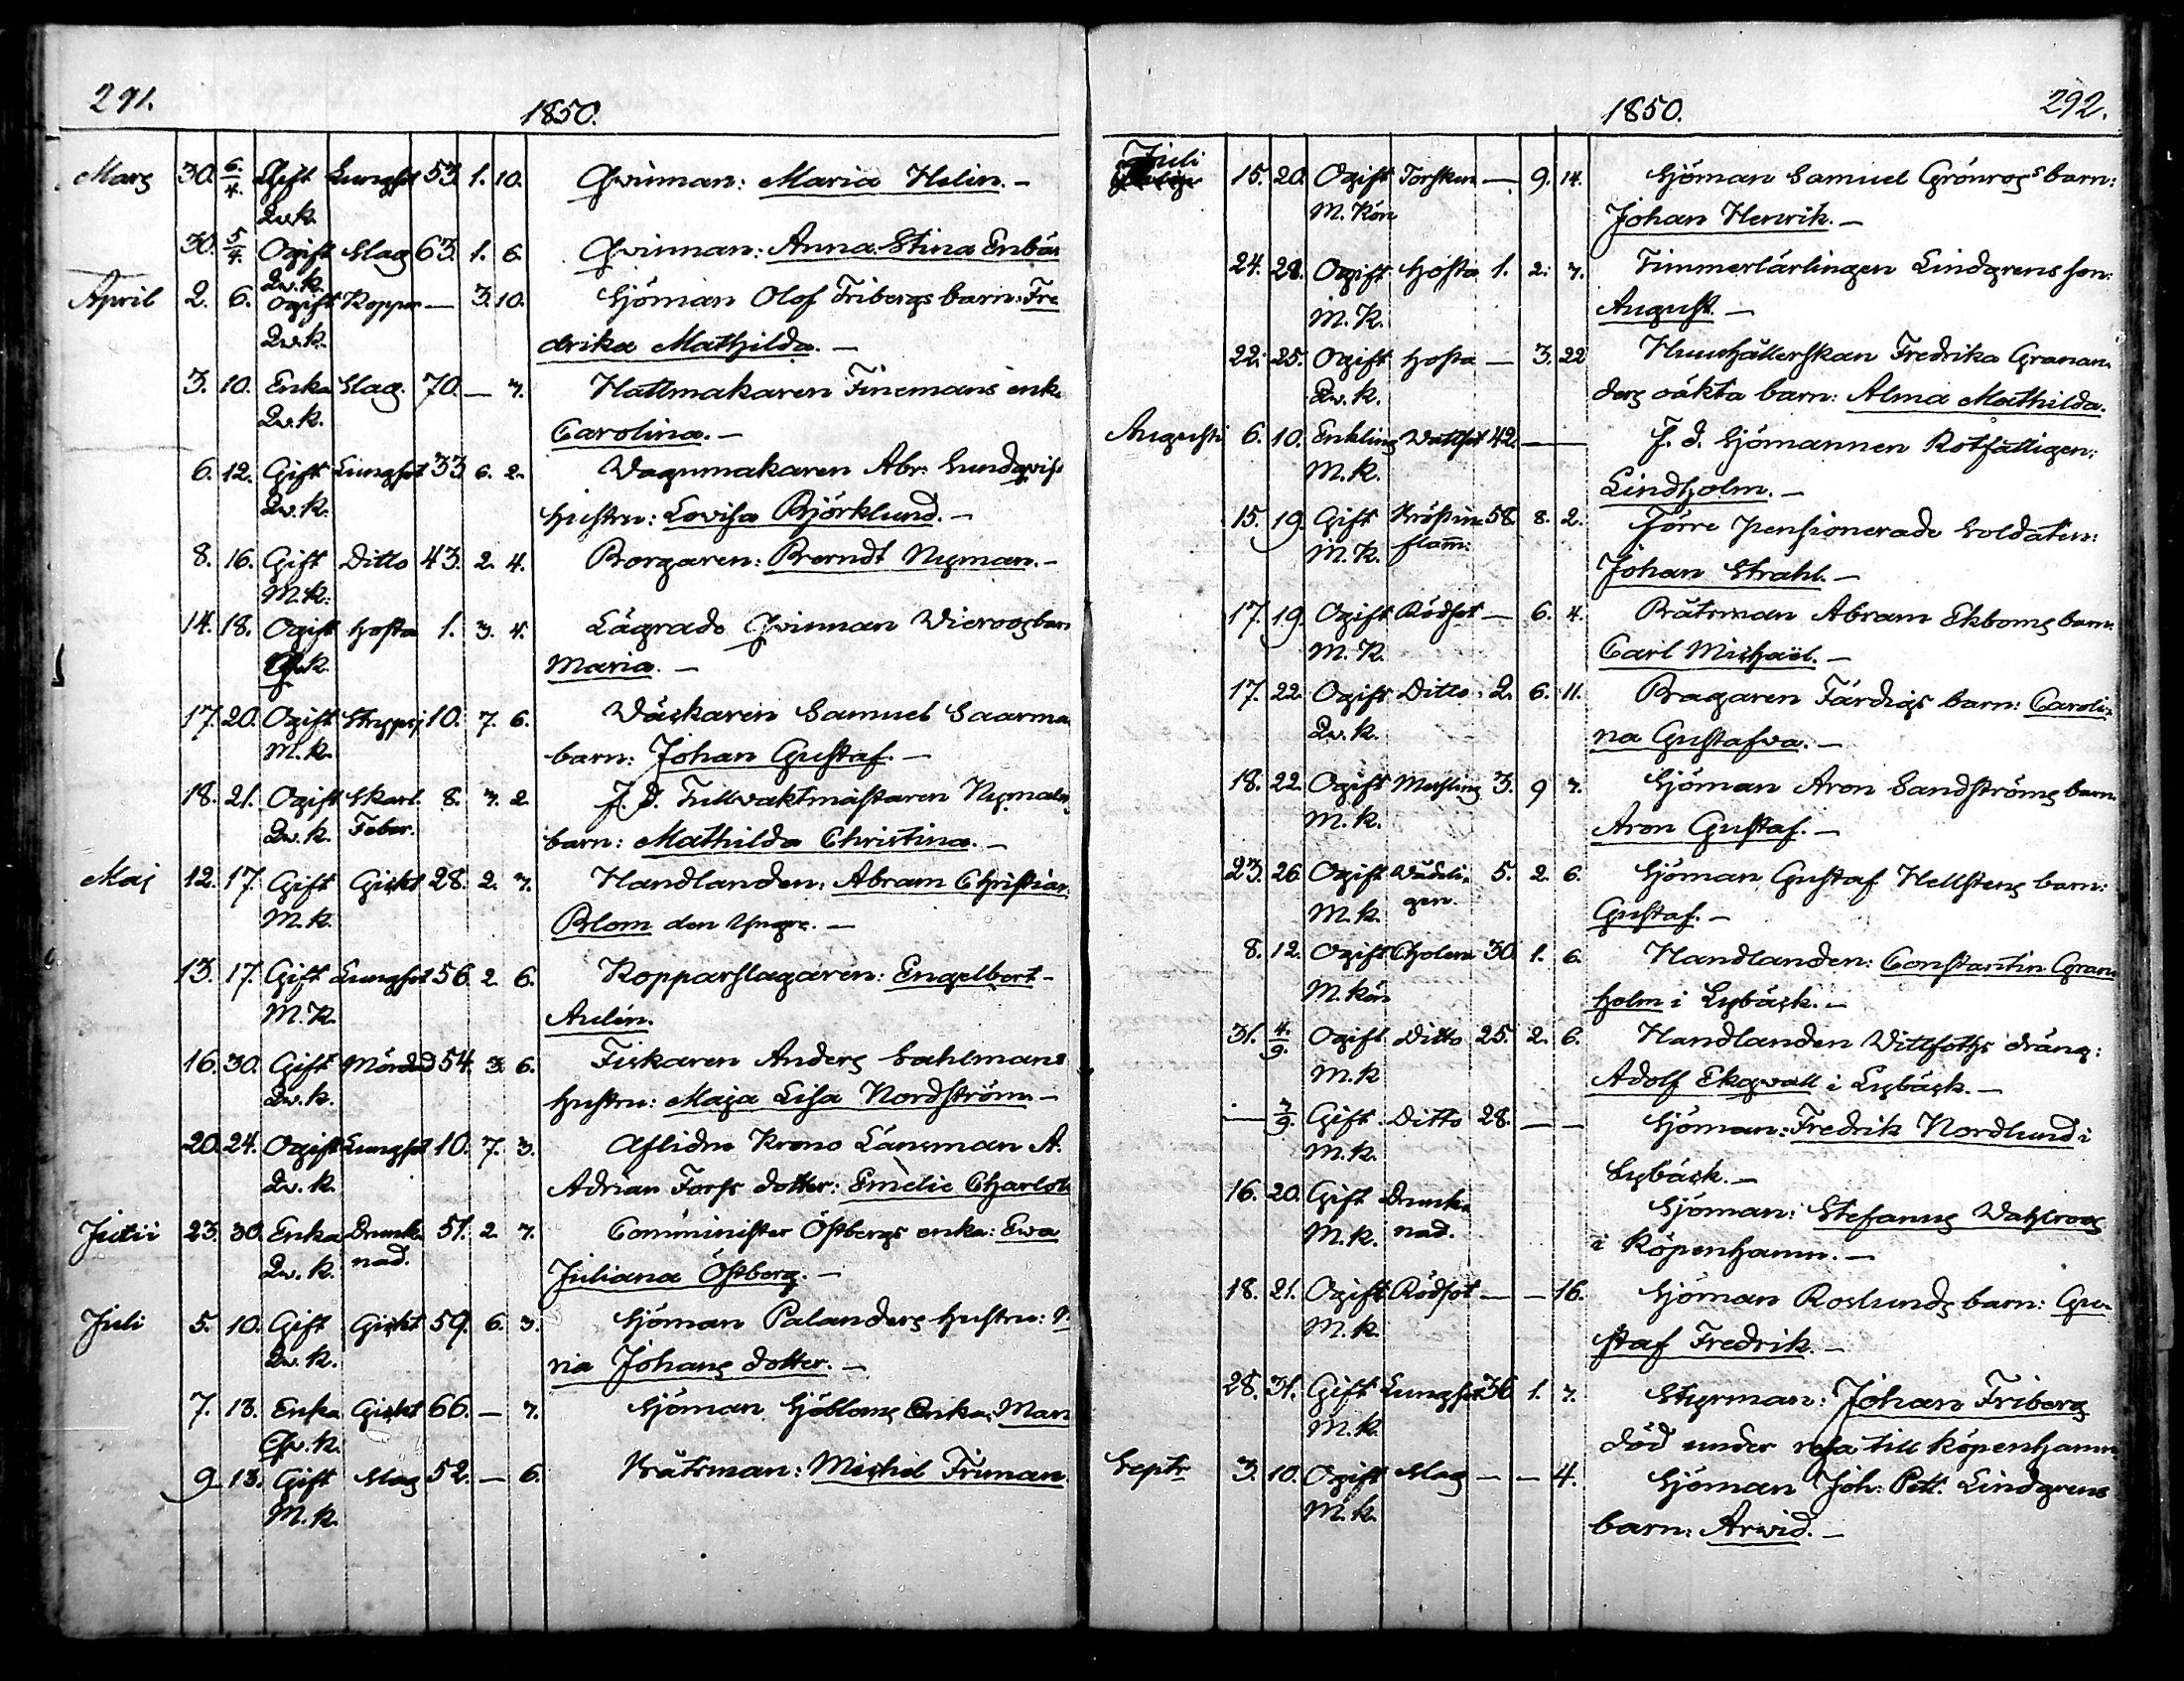 291.
1850.
Mars 30. 6/4. Gift Lungsot 53. 1. 10. Qvinnan: Maria Helin. –
Qv.k.
30. 5/4. Ogift Slag 63. 1. 6. Qvinnan: Anna Stina Enbär
Qv.k.
April 2. 6. Ogift Koppor — 3. 10. Sjöman Olof Fribergs barn: Fre
Qv.k. drika Mathilda. –
3. 10. Enka Slag. 70. — 7. Hattmakaren Finemans enk
Qv.k. Carolina. –
6. 12. Gift Lungsot 33 6. 2. Vagnmakaren Abr: Sundqvist
Qv.k. hustru: Lovisa Björklund. –
8. 16. Gift Ditto 43. 2. 4. Borgaren: Berndt Nyman. –
M.k.
14. 18. Ogift Hosta 1. 3. 4. Lägrade Qvinnan Wieroos barn
Qv.k. Maria. –
17. 20. Ogift Strypsj 10. 7. 6. Wäckaren Samuel Saarma
M.k. barn: Johan Gustaf. –
18. 21. Ogift Skarl. 8. 7. 2. F. d. Tullvaktmästaren Nymans
Qv.k. Feber. barn: Mathilda Christina. –
Maj 12. 17. Gift Gickt 28. 2. 7. Handlanden: Abram Christian
M.k. Blom den Yngre. –
13. 17. Gift Lungsot 56. 2. 6. Kopparslagaren: Engelbert –
M.K. Aulin.
16. 30. Gift Mördad 54. 3. 6. Fiskaren Anders Sahlmans
Qv.k. hustru: Maja Lisa Nordström. –
20. 24. Ogift Lungsot 10. 7. 3. Aflidne Krono Länsman A.
Qv.k. Adrian Forss dotter: Emelie Charlott
Junii 23. 30. Enka Drunk- 51. 2. 7. Comminister Östbergs enka: Ewa
Qv.k. nad. Juliana Östberg. –
Juli 5. 10. Gift Gickt 59. 6. 3. Sjöman Palanders hustru:
Qv.k. ria Johans dotter. –
7. 13. Enka Gickt 66. — 7. Sjöman Sjöbloms Enka: Mari
Qv.k.
9 13. Gift Slag 52. — 6. Råtsman: Michel Friman
M.k.
1850.
292.
Juli 15. 20. Ogift Torsken — 9. 14. Sjöman Samuel Grönroos barn:
M.Kön Johan Henrik. –
24. 28. Ogift Hosta 1. 2. 7. Timmerlärlingen Lindgrens son:
M.K. August. –
22. 25. Ogift Hosta — 3. 22 Hushållerskan Fredrika Granan-
Qv.k. ders oäkta barn: Alma Mathilda.
Augusti 6. 10. Enkling Wattsot 42. — — F. d. Sjömannen Rotfattigen:
M.k. Lindholm. –
15. 19. Gift Bröstin- 58. 8. 2. Förre pensionerade Soldaten:
M.K. flam: Johan Strahl. –
17. 19. Ogift Rödsot — 6. 4. Båtsman Abram Ekboms barn
M.K. Carl Michaël. –
17. 22. Ogift Ditto 2. 6. 11. Bragaren Färdigs barn: Caroli-
Qv.k. na Gustafva. –
18. 22. Ogift Mesling 3. 9 7. Sjöman Aron Sandströms barn
M.k. Aron Gustaf. –
23. 26. Ogift 5. 2. 6. Sjöman Gustaf Hellstens barn:
M.k. gen. Gustaf. –
8. 12. Ogift Cholera 30. 1. 6. Handlanden: Constantin Gran-
M.Kön holm i Lybäck. –
31. 4/9. Ogift Ditto 25. 2. 6. Handlanden Wittfoths dräng:
M.k Adolf Ekqvall i Lybäck. –
— 7/9. Gift Ditto 28. — — Sjöman: Fredrik Nordlund i
M.k. Lybäck. –
16. 20. Gift Drunk- Sjöman: Stefanus Wahlroos
M.k. nad. i Köpenhamn. –
18. 21. Ogift Rödsot — — 16. Sjöman Roslunds barn: Gu-
M.k. staf Fredrik. –
28. 31. Gift Lungsot 36 1. 7. Styrman: Johan Friberg
M.k. död under resa till Köpenhamn
Septr 3. 10. Ogift Slag — — 4. Sjöman Joh: Pett: Lindgrens
M.k. barn: Arvid. –